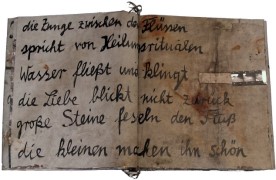 die Zunge zwischen den Flüssen
spricht von Heilungsritualen
Wasser fließt und klingt
die Liebe blickt nicht zurück
große Steine feseln den Fluß
die kleinen machen ihn schön